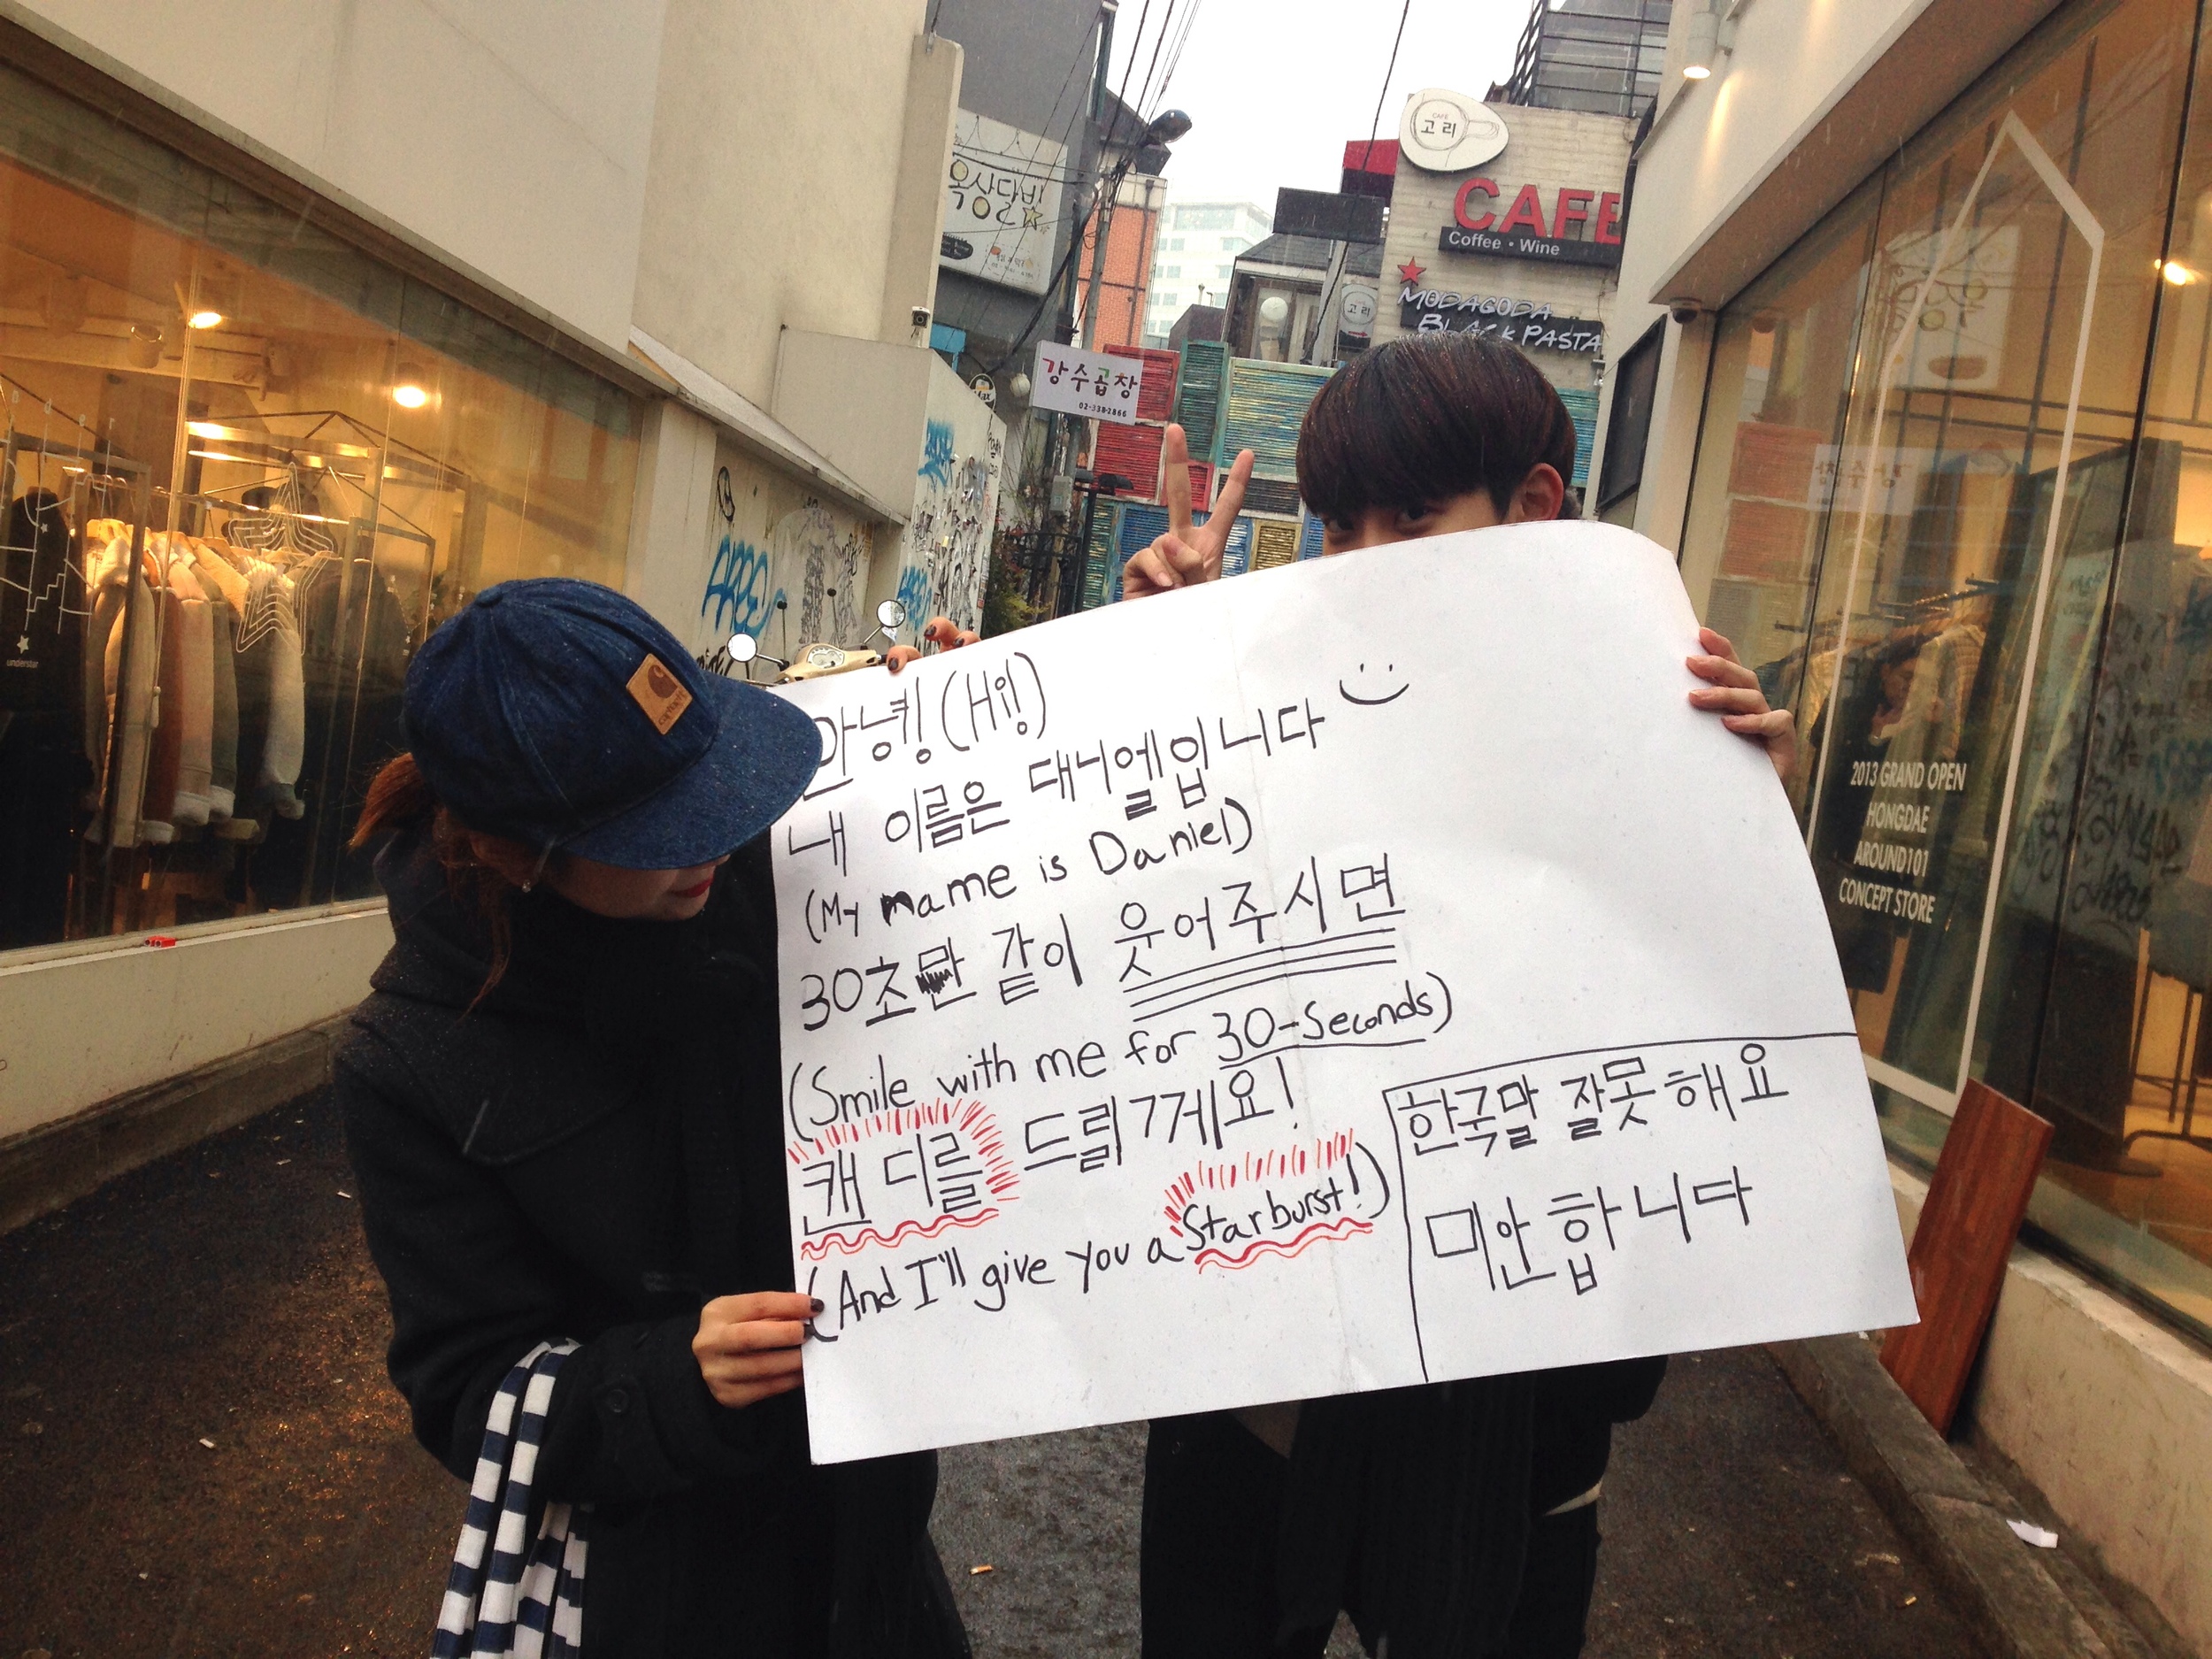 옥상달빛
CAFE
고리
CAFE
Coffee • Wine
MODAGODA
BLACK PASTA
고리
강수곱창
02-338-2866
carhartt
understar
2013 GRAND OPEN
HONGDAE
AROUND101
CONCEPT STORE
안녕! (Hi!)
내 이름은 대니엘입니다
(My name is Daniel)
30초만 같이 웃어주시면
(Smile with me for 30-Seconds)
캔디를 드릴게요!
(And I'll give you a Starburst!)
한국말 잘못해요
미안합니다